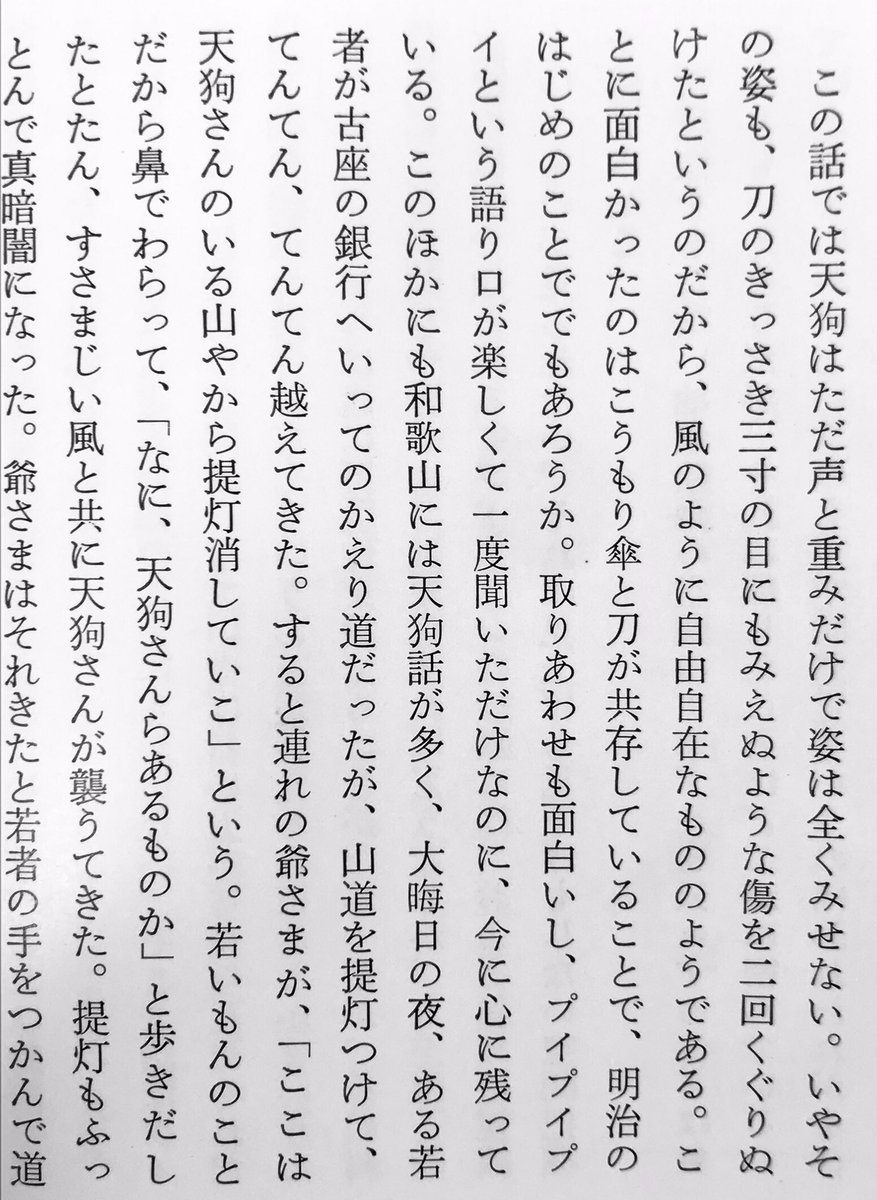 この話では天狗はただ声と重みだけで姿は全くみせない。いやそ
の姿も、刀のきっさき三寸の目にもみえぬような傷を二回くぐりぬ
けたというのだから、風のように自由自在なもののようである。こ
とに面白かったのはこうもり傘と刀が共存していることで、明治の
はじめのことででもあろうか。取りあわせも面白いし、プイプイプ
イという語り口が楽しくて一度聞いただけなのに、今に心に残って
いる。このほかにも和歌山には天狗話が多く、大晦日の夜、ある若
者が古座の銀行へいってのかえり道だったが、山道を提灯つけて、
てんてん、てんてん越えてきた。すると連れの爺さまが、「ここは
天狗さんのいる山やから提灯消していこ」という。若いもんのこと
だから鼻でわらって、「なに、天狗さんらあるものか」と歩きだし
たとたん、すさまじい風と共に天狗さんが襲うてきた。提灯もふっ
とんで真暗闇になった。爺さまはそれきたと若者の手をつかんで道